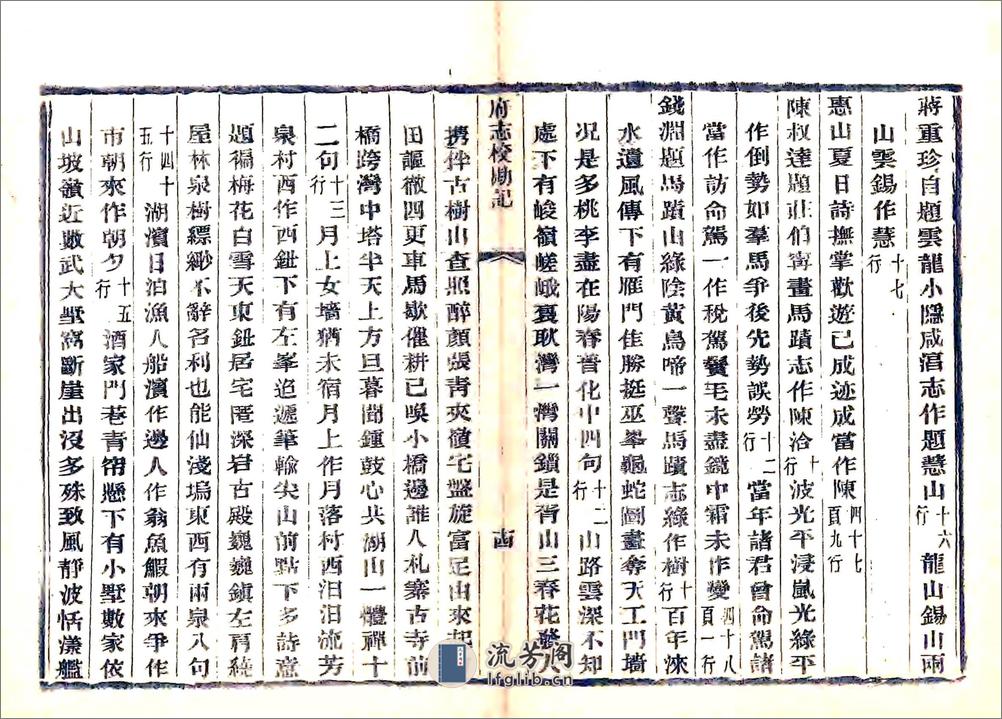 蔣重珍自題雲龍小隱咸淳志作題慧山十六行龍山錫山兩
山雲錫作慧十七行
惠山夏日詩撫掌歡遊已成迹成當作陳四十七頁九行
陳叔達題莊伯甯畫馬蹟志作陳洽十行波光平浸嵐光綠平
作倒勢如羣馬爭後先勢誤勞十二行當年諸君曾命駕諸
當作訪命駕一作稅駕鬢毛未盡鏡中霜未作變四十八頁一行
錢淵題馬蹟山綠陰黃鳥啼一聲馬蹟志綠作樹十行百年淶
水遺風傳下有雁門佳勝挺巫峯龜蛇圖畫奪天工門墻
況是多桃李盡在陽春普化中四句十二行山路雲深不知
處下有峻嶺嵯峨裏耿灣一灣關鎖是胥山三春花發
府志校勘記
携伴古樹山查照醉顏張青夾嶺宅盤旋富足由來起
田謳徹四更車馬歇催耕已唤小橋邊誰人札寨古寺前
橋跨灣中塔半天上方旦暮聞鍾鼓心共湖山一體禪十
二句十三行月上女墻猶未宿月上作月落村西汨汨流芳
泉村西作西鈕下有左峯追遞筆輸尖山前點下多詩意
題褔梅花白雪天東鈕居宅菴深岩古殿巍巍鎮左肩繞
屋林泉樹縹緲不辭名利也能仙淺塢東西有兩泉八句
十四十五行湖濱日泊漁人船濱作邊人作翁魚鰕朝來爭作
市朝來作朝夕十五行酒家門巷青帘懸下有小墅數家依
山坡嶺近數武大墅窩斷崖出沒多殊致風靜波恬漾艦
流芳阁
lfglib.cn